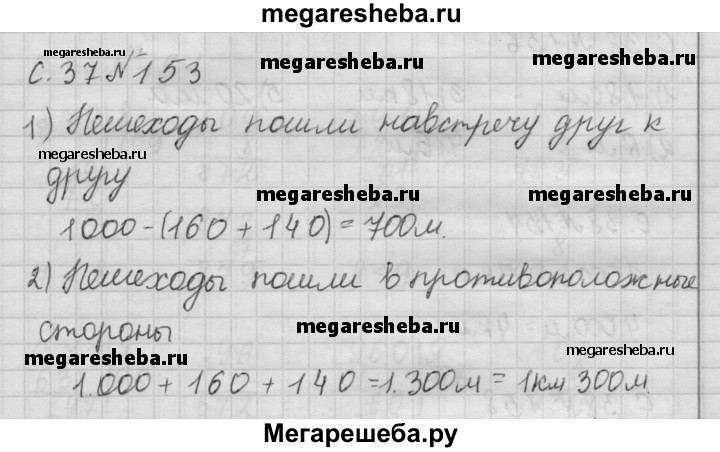 megaresheba.ru
megaresheba.ru
с. 37 № 153
megaresheba.ru
megaresheba.ru
1) Пешеходы пошли навстречу друг к
megaresheba.ru
другу
megaresheba.ru
megaresheba.ru
1000-(160+140)=700м.
2) Пешеходы пошли в противоположные
megaresheba.ru
стороны
megaresheba.ru
megaresheba.ru
1.000+160+140=1.300м=1км 300м.
Мегарешеба.ру